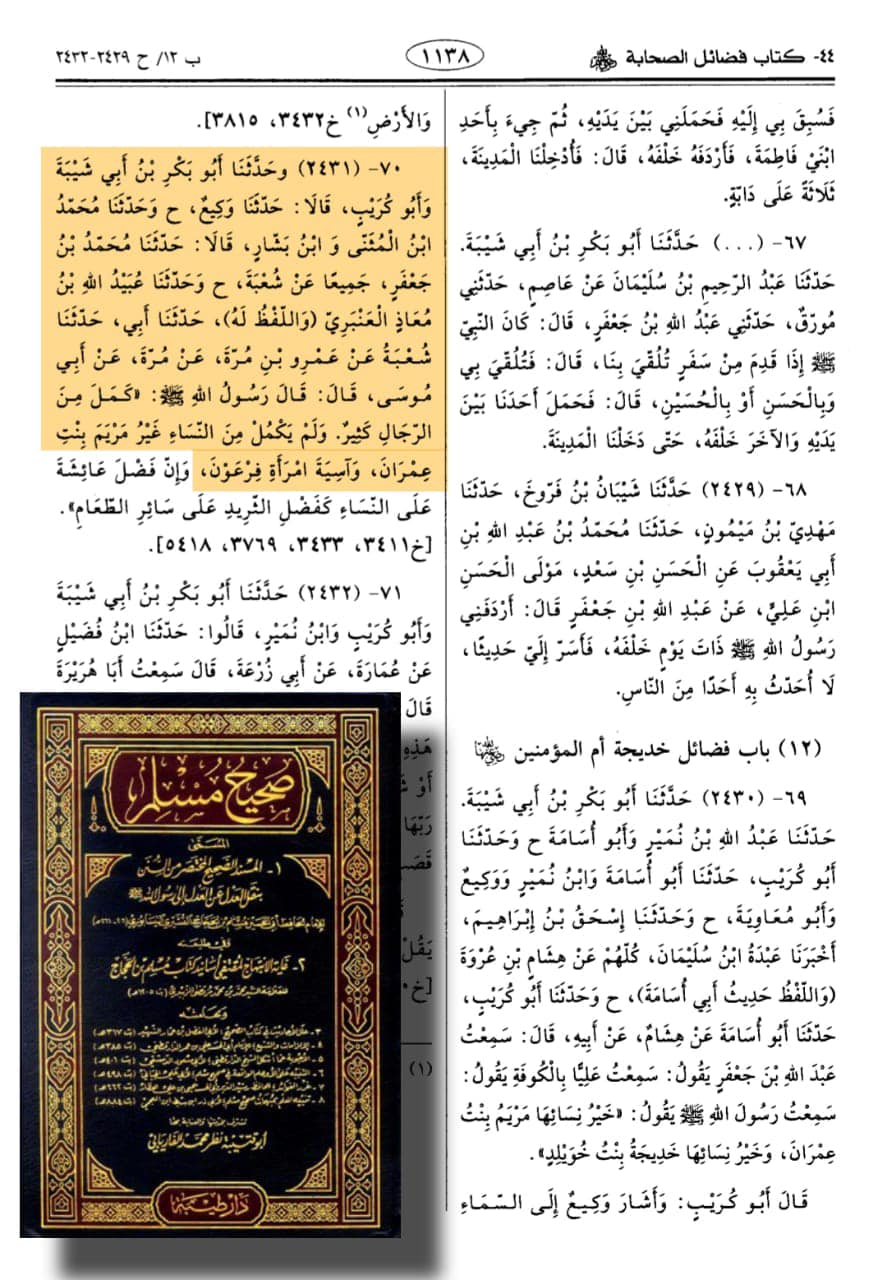 ٤٤- كتاب فضائل الصحابة ﷺ
١١٣٨
ب ١٢/ ح ٢٤٢٩-٢٤٣٢
فَسُبِقَ بِي إِلَيْهِ فَحَمَلَنِي بَيْنَ يَدَيْهِ، ثُمَّ جِيءَ بِأَحَدِ
ابْنَيْ فَاطِمَةَ، فَأَرْدَفَهُ خَلْفَهُ، قَالَ: فَأُدْخِلْنَا الْمَدِينَةَ،
ثَلَاثَةً عَلَى دَابَّةٍ.
٦٧- (...) حَدَّثَنَا أَبُو بَكْرِ بْنُ أَبِي شَيْبَةَ.
حَدَّثَنَا عَبْدُ الرَّحِيمِ بْنُ سُلَيْمَانَ عَنْ عَاصِمٍ، حَدَّثَنِي
مُورِّقٌ، حَدَّثَنِي عَبْدُ اللهِ بْنُ جَعْفَرٍ، قَالَ: كَانَ النَّبِيُّ
ﷺ إِذَا قَدِمَ مِنْ سَفَرٍ تُلُقِّيَ بِنَا، قَالَ: فَتُلُقِّيَ بِي
وَبِالْحَسَنِ أَوْ بِالْحُسَيْنِ، قَالَ: فَحَمَلَ أَحَدَنَا بَيْنَ
يَدَيْهِ وَالْآخَرَ خَلْفَهُ، حَتَّى دَخَلْنَا الْمَدِينَةَ.
٦٨- (٢٤٢٩) حَدَّثَنَا شَيْبَانُ بْنُ فَرُّوخَ، حَدَّثَنَا
مَهْدِيُّ بْنُ مَيْمُونٍ، حَدَّثَنَا مُحَمَّدُ بْنُ عَبْدِ اللهِ بْنِ
أَبِي يَعْقُوبَ عَنِ الْحَسَنِ بْنِ سَعْدٍ، مَوْلَى الْحَسَنِ
ابْنِ عَلِيٍّ، عَنْ عَبْدِ اللهِ بْنِ جَعْفَرٍ قَالَ: أَرْدَفَنِي
رَسُولُ اللهِ ﷺ ذَاتَ يَوْمٍ خَلْفَهُ، فَأَسَرَّ إِلَيَّ حَدِيثًا،
لَا أُحَدِّثُ بِهِ أَحَدًا مِنَ النَّاسِ.
(١٢) باب فضائل خديجة أم المؤمنين
٦٩- (٢٤٣٠) حَدَّثَنَا أَبُو بَكْرِ بْنُ أَبِي شَيْبَةَ.
حَدَّثَنَا عَبْدُ اللهِ بْنُ نُمَيْرٍ وَأَبُو أُسَامَةَ ح وَحَدَّثَنَا
أَبُو كُرَيْبٍ، حَدَّثَنَا أَبُو أُسَامَةَ وَابْنُ نُمَيْرٍ وَوَكِيعٌ
وَأَبُو مُعَاوِيَةَ، ح وَحَدَّثَنَا إِسْحَقُ بْنُ إِبْرَاهِيمَ،
أَخْبَرَنَا عَبْدَةُ ابْنُ سُلَيْمَانَ، كُلُّهُمْ عَنْ هِشَامِ بْنِ عُرْوَةَ
(وَاللَّفْظُ حَدِيثُ أَبِي أُسَامَةَ)، ح وَحَدَّثَنَا أَبُو كُرَيْبٍ،
حَدَّثَنَا أَبُو أُسَامَةَ عَنْ هِشَامٍ، عَنْ أَبِيهِ، قَالَ: سَمِعْتُ
عَبْدَ اللهِ بْنَ جَعْفَرٍ يَقُولُ: سَمِعْتُ عَلِيًّا بِالْكُوفَةِ يَقُولُ:
سَمِعْتُ رَسُولَ اللهِ ﷺ يَقُولُ: «خَيْرُ نِسَائِهَا مَرْيَمُ بِنْتُ
عِمْرَانَ، وَخَيْرُ نِسَائِهَا خَدِيجَةُ بِنْتُ خُوَيْلِدٍ».
قَالَ أَبُو كُرَيْبٍ: وَأَشَارَ وَكِيعٌ إِلَى السَّمَاءِ
وَالْأَرْضِ(١) خ٣٤٣٢، ٣٨١٥].
٧٠- (٢٤٣١) وحَدَّثَنَا أَبُو بَكْرِ بْنُ أَبِي شَيْبَةَ
وَأَبُو كُرَيْبٍ، قَالَا: حَدَّثَنَا وَكِيعٌ، ح وَحَدَّثَنَا مُحَمَّدُ
ابْنُ الْمُثَنَّى وَ ابْنُ بَشَّارٍ، قَالَا: حَدَّثَنَا مُحَمَّدُ بْنُ
جَعْفَرٍ، جَمِيعًا عَنْ شُعْبَةَ، ح وَحَدَّثَنَا عُبَيْدُ اللهِ بْنُ
مُعَاذٍ الْعَنْبَرِيُّ (وَاللَّفْظُ لَهُ)، حَدَّثَنَا أَبِي، حَدَّثَنَا
شُعْبَةُ عَنْ عَمْرِو بْنِ مُرَّةَ، عَنْ مُرَّةَ، عَنْ أَبِي
مُوسَى، قَالَ: قَالَ رَسُولُ اللهِ ﷺ: «كَمَلَ مِنَ
الرِّجَالِ كَثِيرٌ. وَلَمْ يَكْمُلْ مِنَ النِّسَاءِ غَيْرُ مَرْيَمَ بِنْتِ
عِمْرَانَ، وَآسِيَةَ امْرَأَةِ فِرْعَوْنَ، وَإِنَّ فَضْلَ عَائِشَةَ
عَلَى النِّسَاءِ كَفَضْلِ الثَّرِيدِ عَلَى سَائِرِ الطَّعَامِ».
[خ٣٤١١، ٣٤٣٣، ٣٧٦٩، ٥٤١٨].
٧١- (٢٤٣٢) حَدَّثَنَا أَبُو بَكْرِ بْنُ أَبِي شَيْبَةَ
وَأَبُو كُرَيْبٍ وَابْنُ نُمَيْرٍ، قَالُوا: حَدَّثَنَا ابْنُ فُضَيْلٍ
عَنْ عُمَارَةَ، عَنْ أَبِي زُرْعَةَ، قَالَ سَمِعْتُ أَبَا هُرَيْرَةَ
قَالَ
هَذِهِ
أَوْ
رَبِّهَا
يَقُلْ
(١)
صحيح مسلم
المسمى
١- المسند الصحيح المختصر من السنن
بنقل العدل عن العدل إلى رسول الله ﷺ
وفي طليعته
٢- غاية الابتهاج لمقتفي أسانيد كتاب مسلم بن الحجاج
وبحاشيته
أبو قتيبة نظر محمد الفاريابي
دار طيبة